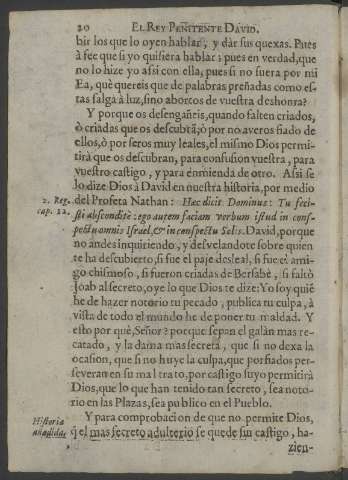 20 EL REY PENITENTE DAVID.
bir los que lo oyen hablar, y dàr sus quexas. Pues
à fee que si yo quisiera hablar: pues en verdad, que
no lo hize yo assi con ella, pues si no fuera por mi:
Ea, què quereis que de palabras preñadas como es-
tas salga à luz, sino abortos de vuestra deshonra?
Y porque os desengañeis, quando falten criados,
ò criadas que os descubrã; ò por no averos fiado de
ellos, ò por seros muy leales, el mismo Dios permi-
tirà que os descubran, para confusion vuestra, para
vuestro castigo, y para enmienda de otro. Assi se
lo dize Dios à David en nuestra historia, por medio
2. Reg. del Profeta Nathan: Hæc dicit Dominus: Tu feci-
cap. 12. sti abscondite: ego autem faciam verbum istud in cons-
pectu omnis Israel, & in conspectu Solis. David, porque
no andes inquiriendo, y desvelandote sobre quien
te ha descubierto, si fue el paje desleal, si fue el ami-
go chismoso, si fueron criadas de Bersabè, si faltò
Joab al secreto, oye lo que Dios te dize: Yo soy quiẽ
he de hazer notorio tu pecado, publica tu culpa, à
vista de todo el mundo he de poner tu maldad. Y
esto por què, Señor? porque sepan el galàn mas re-
catado, y la dama mas secreta, que si no dexa la
ocasion, que si no huye la culpa, que porfiados per-
severan en su mal trato, por castigo suyo permitirà
Dios, que lo que han tenido tan secreto, sea noto-
rio en las Plazas, sea publico en el Pueblo.
Historia Y para comprobacion de que no permite Dios,
añadida. q̃ el mas secreto adulterio se quede sin castigo, ha-
zien-